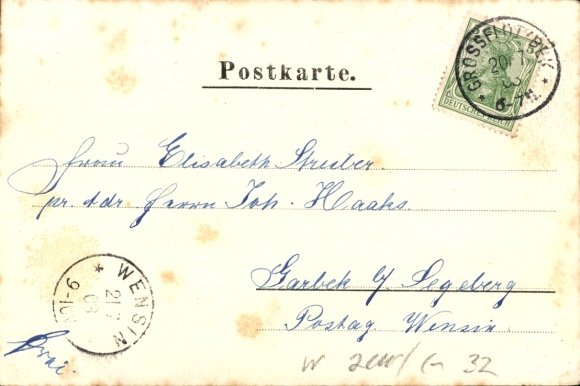 Postkarte.
GROSSFLOTTBEK
20.7
6-7N.
DEUTSCHES REICH
Frau Elisabeth Streiber.
pr. Adr. Herrn Joh. Haaks.
Garbek b/ Segeberg
Postag. Wensin
WENSIN
21/7
03
9-10
frei.
32